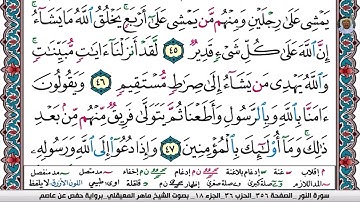 يَمْشِى عَلَىٰ رِجْلَيْنِ وَمِنْهُم مَّن يَمْشِى عَلَىٰٓ أَرْبَعٍ ۚ يَخْلُقُ ٱللَّهُ مَا يَشَآءُ ۚ
إِنَّ ٱللَّهَ عَلَىٰ كُلِّ شَىْءٍ قَدِيرٌ ٤٥ لَّقَدْ أَنزَلْنَآ ءَايَٰتٍ مُّبَيِّنَٰتٍ ۚ
وَٱللَّهُ يَهْدِى مَن يَشَآءُ إِلَىٰ صِرَٰطٍ مُّسْتَقِيمٍ ٤٦ وَيَقُولُونَ
ءَامَنَّا بِٱللَّهِ وَبِٱلرَّسُولِ وَأَطَعْنَا ثُمَّ يَتَوَلَّىٰ فَرِيقٌ مِّنْهُم مِّنۢ بَعْدِ
ذَٰلِكَ ۚ وَمَآ أُو۟لَٰٓئِكَ بِٱلْمُؤْمِنِينَ ٤٧ وَإِذَا دُعُوٓا۟ إِلَى ٱللَّهِ وَرَسُولِهِۦ
سورة النور _ الصفحة ٣٥٦ _ الحزب ٣٦ _ الجزء ١٨ _ بصوت الشيخ ماهر المعيقلي برواية حفص عن عاصم